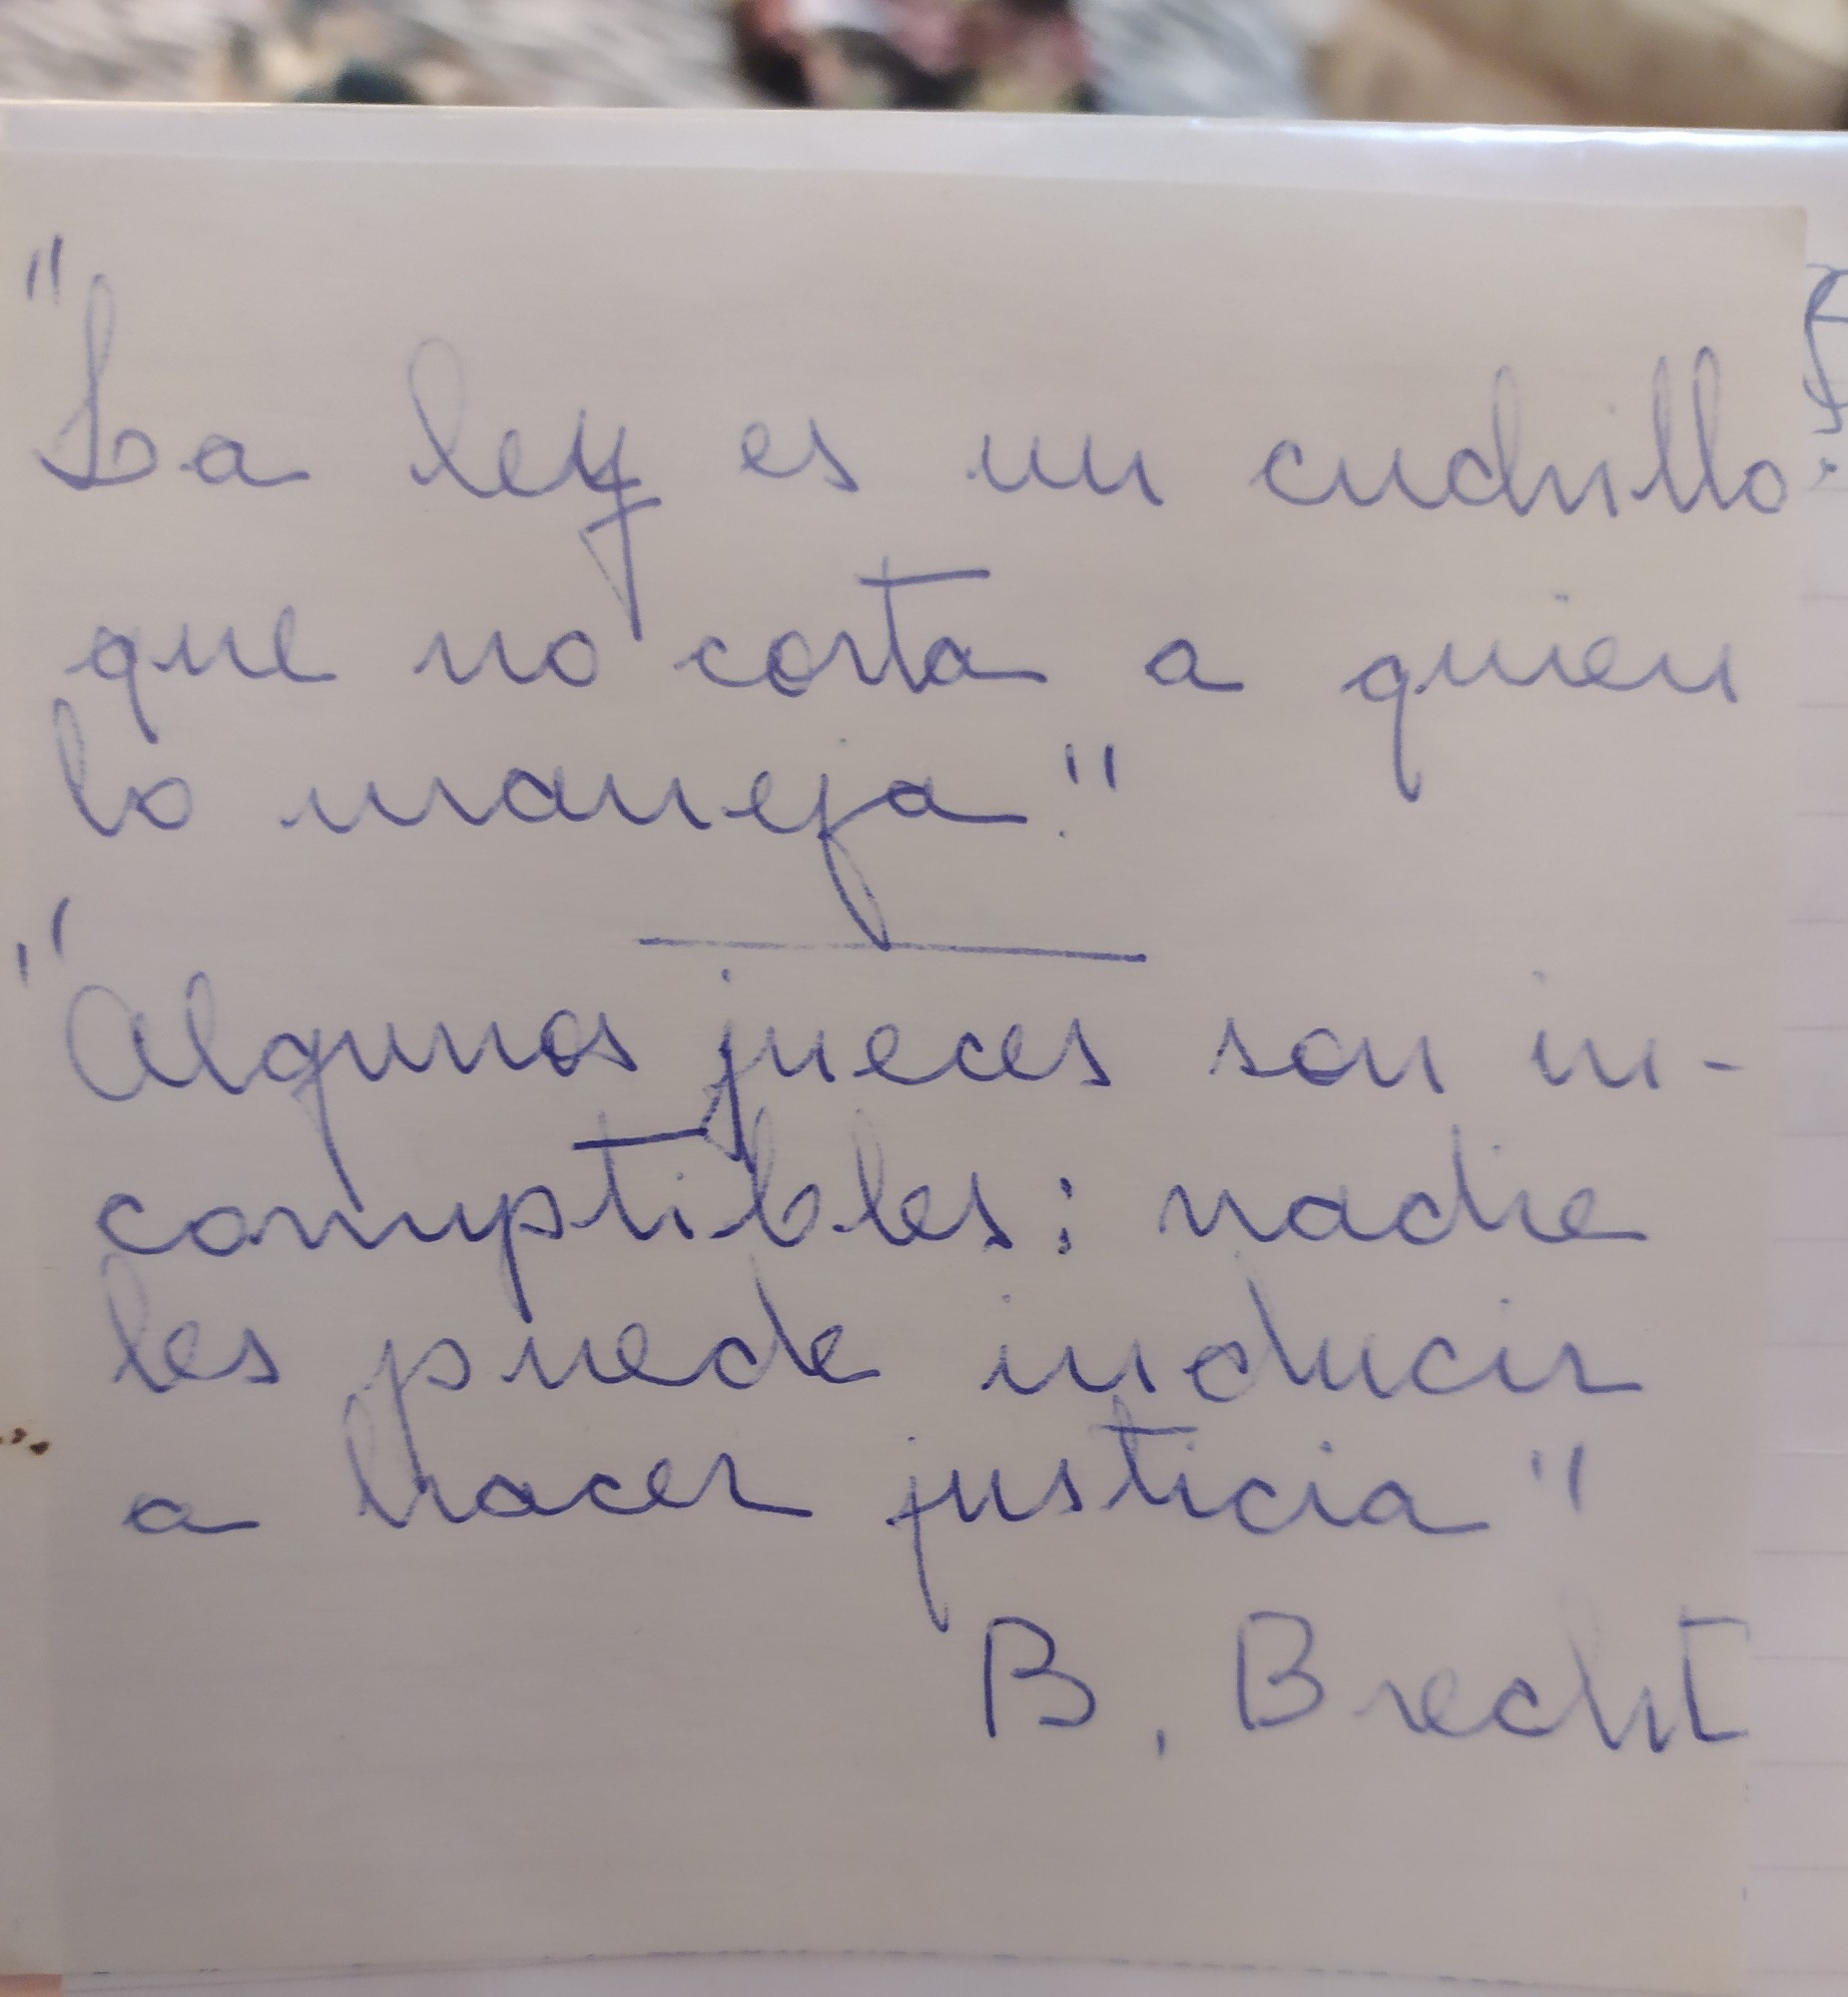 "La ley es un cuchillo
que no corta a quien
lo maneja."
"Algunos jueces son in-
corruptibles: nadie
les puede inducir
a hacer justicia"
B. Brecht